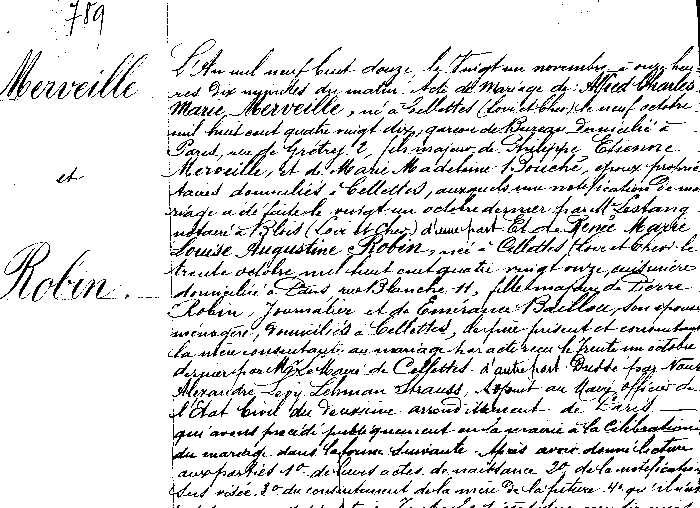 789
Merveille
et
Robin.
L'An mil neuf cent douze, le vingt un novembre à onze heu-
res dix minutes du matin. Acte de Mariage de Alfred Charles
Marie Merveille, né à Cellettes (Loir et Cher) le neuf octobre
mil huit cent quatre vingt dix, garçon de Bureau domicilié à
Paris, rue de Grétry 2, fils majeur de Philippe
Merveille, et de Marie Madeleine Bouché, époux proprié-
taires domiciliés à Cellettes, auxquels une notification de ma-
riage a été faite le vingt un octobre dernier par Me Lestang
notaire à Blois (Loir et Cher) d'une part Et de Renée Marie
Louise Augustine Robin, née à Cellettes (Loir et Cher) le
trente octobre mil huit cent quatre vingt onze, cuisinière
domiciliée à Paris rue Blanche 11, fille majeure de Pierre
Robin, Journalier et de Emérance Baillou, son épouse
ménagère, domiciliés à Cellettes, le père présent et consentant
la mère consentante au mariage par acte reçu le trente un octobre
dernier par Mr Le Maire de Cellettes d'autre part Dressé par Nous
Alexandre Lévy Lehman Strauss, adjoint au Maire, officier de
l'Etat Civil du deuxième arrondissement de Paris
qui avons procédé publiquement en la mairie à la célébration
du mariage dans la forme suivante Après avoir donné lecture
aux parties 1° de leurs actes de naissance 2° de la notification
sus visée 3° du consentement de la mère de la future 4° qu'il n'a